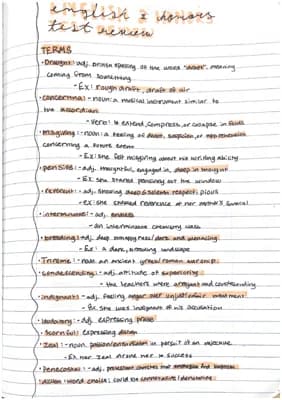 english 2 honors
test review
TERMS
• Draught: adj. British spelling of the word "draft", meaning
coming from something
- Ex: rough draft, draft of air
• concertina: - noun: a musical instrument similar to
the accordian
- verb: to extend, compress, or collapse in folds
• misgiving: - noun: a feeling of doubt, suspicion, or apprehension
concerning a future event
- Ex: she felt misgiving about his writing ability
• pensive: - adj. thoughtful, engaged in, deep in thought
- Ex. she stared pensively out the window
• reverent: - adj. showing deep & solemn respect; pious
- ex: she showed reverence at her mother's funeral
• interminate: - adj. endless
- an interminate chemistry class
• brooding: - adj. deep unhappiness; dark and menacing
- Ex: a dark, brooding landscape
• Trireme: - noun an ancient greek/roman warship
• condescending: - adj. attitude of superiority
- the teachers were arrogant and condescending
• indignant: - adj. feeling anger over unjust/unfair treatment
- Ex. She was indignant of his accusation
• laudatory: - adj. expressing praise
• Scornful: expressing disdain
• Zeal: - noun. passion/enthusiasm in pursuit of an objective
- Ex. her zeal drove her to success
• Pentecostal: - adj. protestant churches that emphasize
diction: word choice; could be connotative/denotative